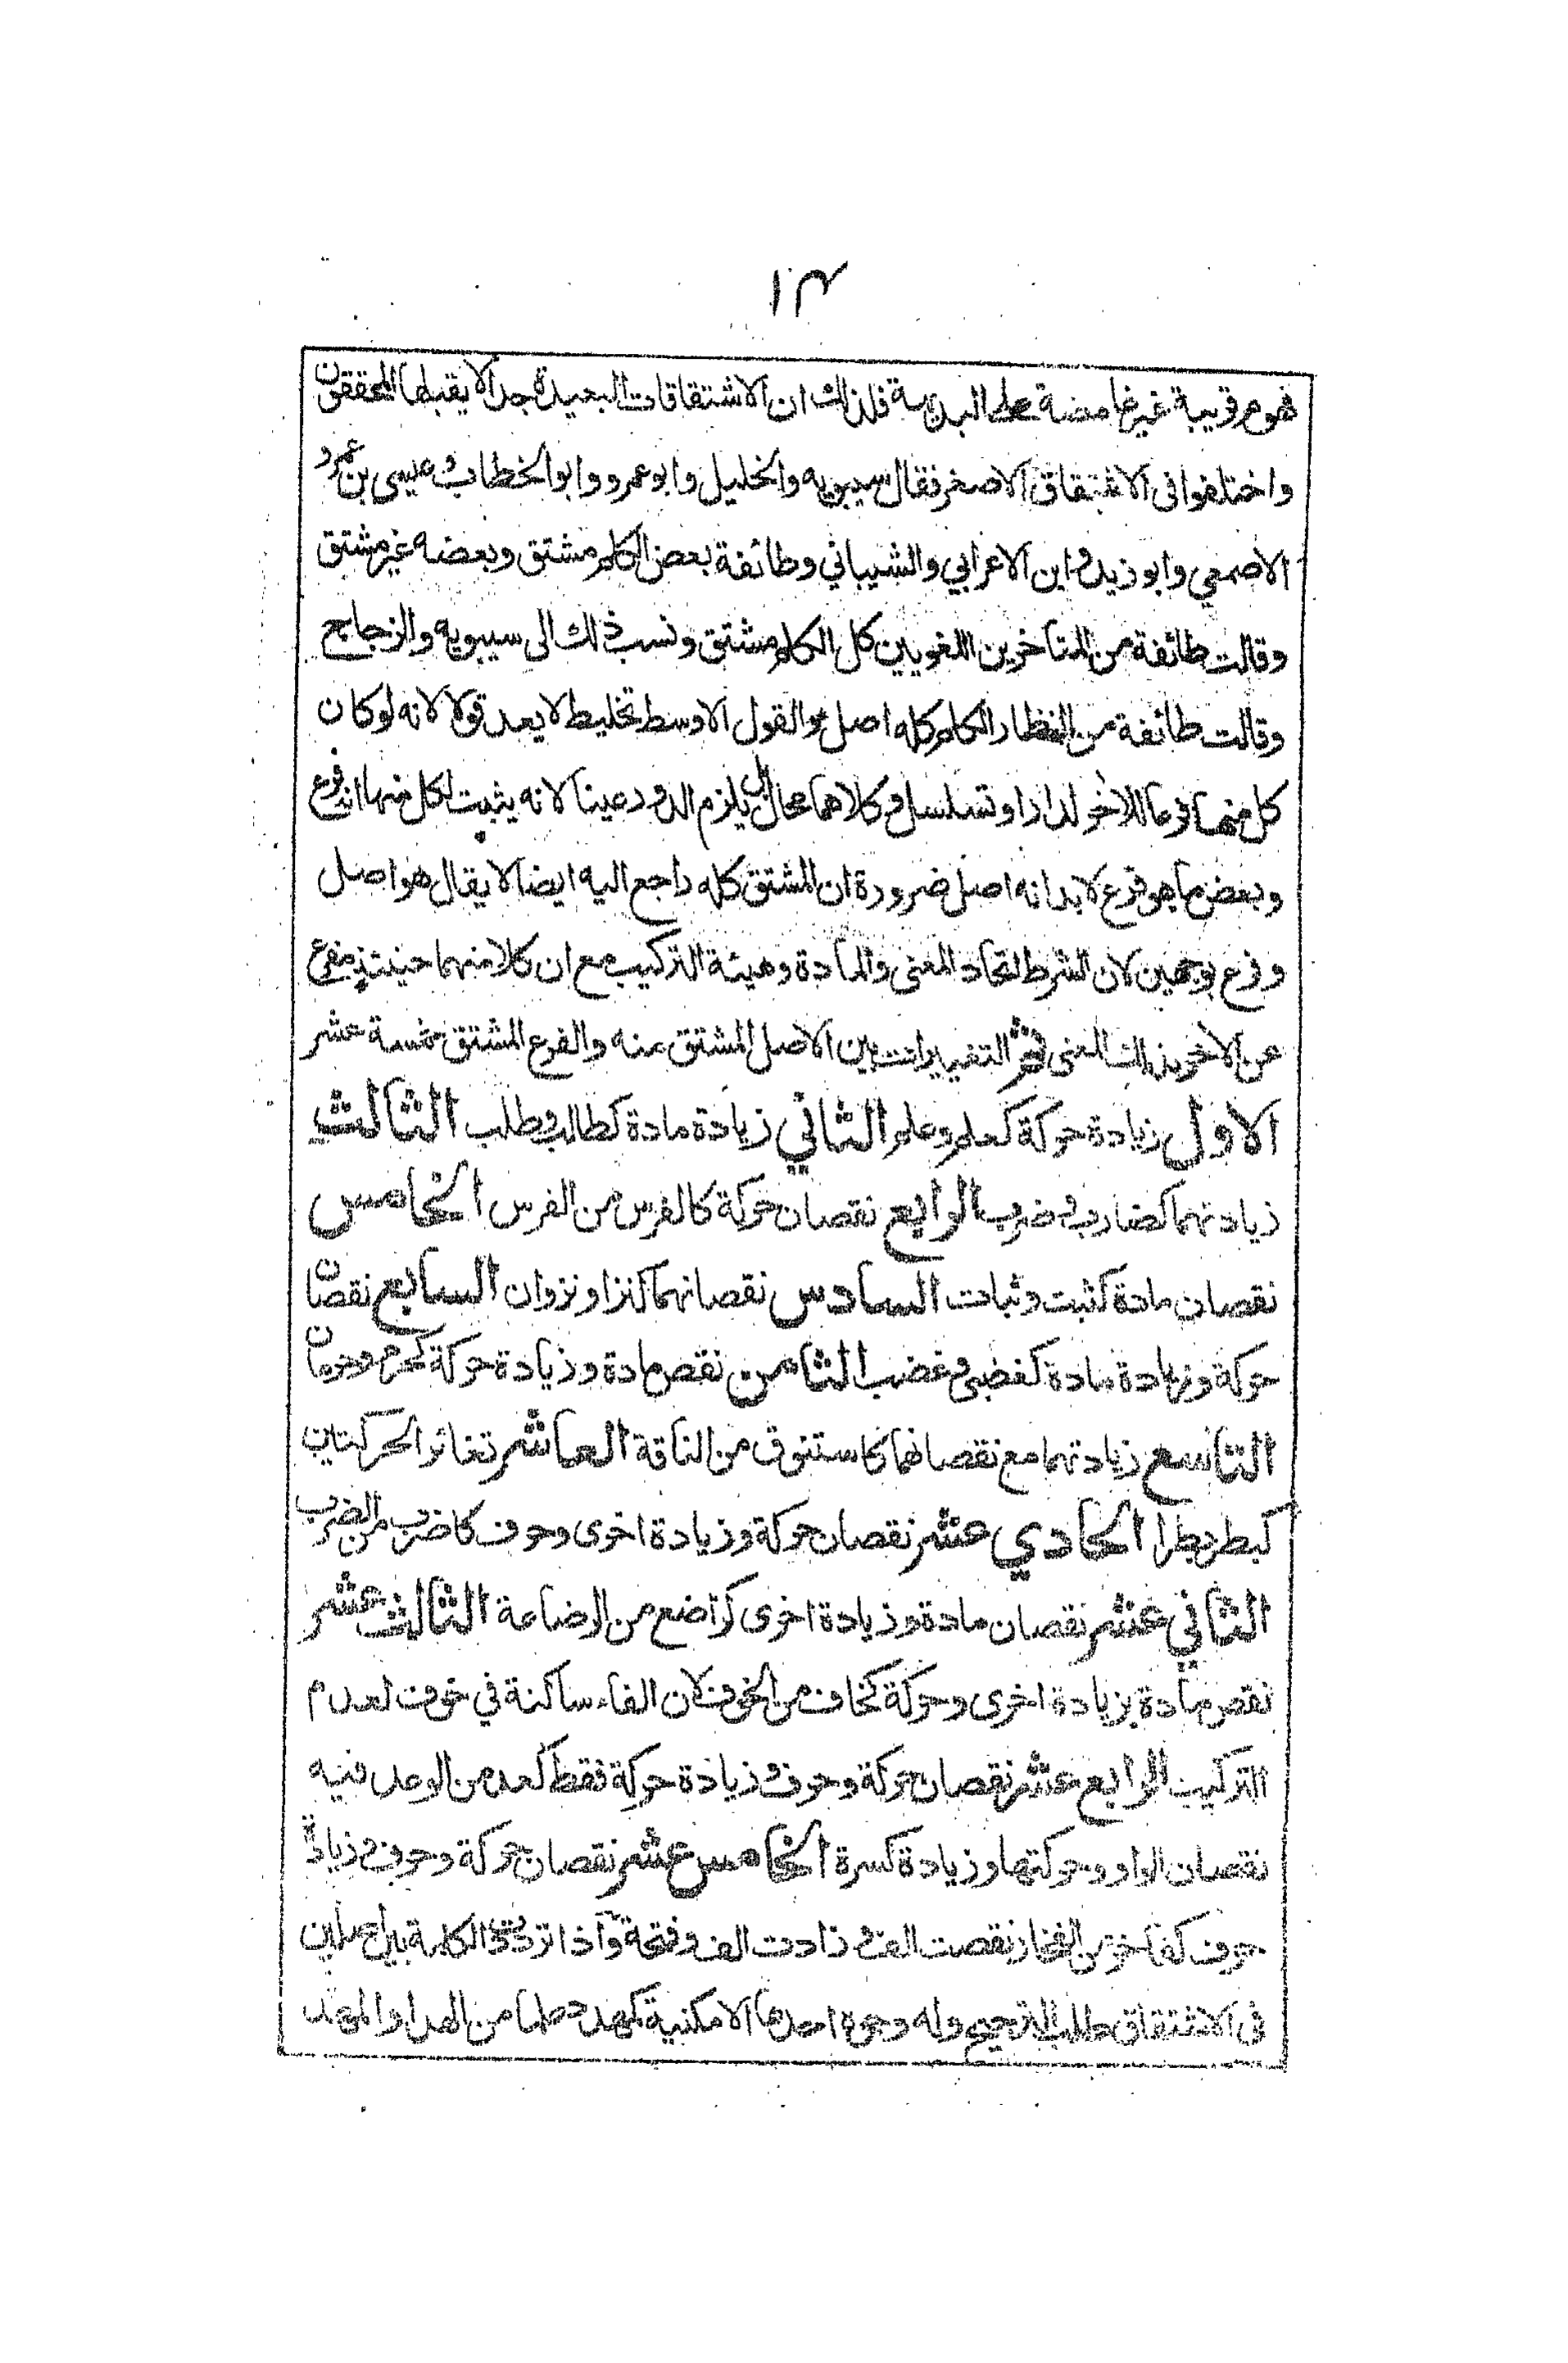 ١٣
فهوم قريبة غير غامضة على البديهة فلذلك ان الاشتقاقات البعيدة جدا لا يقبلها المحققون
واختلفوا فى الاشتقاق الاصغر فقال سيبويه والخليل وابو عمرو وابو الخطاب وعيسى بن عمرو
الاصمعي وابو زيد وابن الاعرابي والشيباني وطائفة بعض الكلم مشتق وبعضه غير مشتق
وقالت طائفة من المتاخرين اللغويين كل الكلم مشتق ونسب ذلك الى سيبويه والزجاج
وقالت طائفة من النظار الكلم كله اصل والقول الاوسط تخليط لا يعد قولا لانه لو كان
كل منهما فرعا للاخر لدار او تسلسل وكلاهما محال بل يلزم الدور عينا لانه يثبت لكل منهما انه فرع
وبعض ما هو فرع لا بد انه اصل ضرورة ان المشتق كله راجع اليه ايضا لا يقال هو اصل
وفرع بوجهين لان الشرط اتحاد المعنى والمادة وهيئة التركيب مع ان كلا منهما حينئذ مفرع
عن الاخر بذلك المعنى ثم التغييرات بين الاصل المشتق منه والفرع المشتق خمسة عشر
الاول زيادة حركة كعلم وعلم الثاني زيادة مادة كطالب وطلب الثالث
زيادتهما كضارب وضرب الرابع نقصان حركة كالفرس من الفرس الخامس
نقصان مادة كثبت وثبات السادس نقصانهما كنزا ونزوان السابع نقصان
حركة وزيادة مادة كغضبى وغضب الثامن نقص مادة وزيادة حركة كحرم وحرمان
التاسع زيادتهما مع نقصانهما كاستنوق من الناقة العاشر تغائر الحركتين
كبطر بطرا الحادي عشر نقصان حركة وزيادة اخرى وحرف كاضرب من الضرب
الثاني عشر نقصان مادة وزيادة اخرى كراضع من الرضاعة الثالث عشر
نقص مادة بزيادة اخرى وحركة كخاف من الخوف لان الفاء ساكنة في خوف لعدم
التركيب الرابع عشر نقصان حركة وحرف وزيادة حركة فقط كعد من الوعد فيه
نقصان الواو وحركتها وزيادة كسرة الخامس عشر نقصان حركة وحرف وزيادة
حرف كفاخر من الفخار نقصت الف وزادت الف وفتحة واذا ترددت الكلمة بين اصلين
فى الاشتقاق طلب الترجيح وله وجوه احدها الامكنية كمهدد علما من الهد او المهد